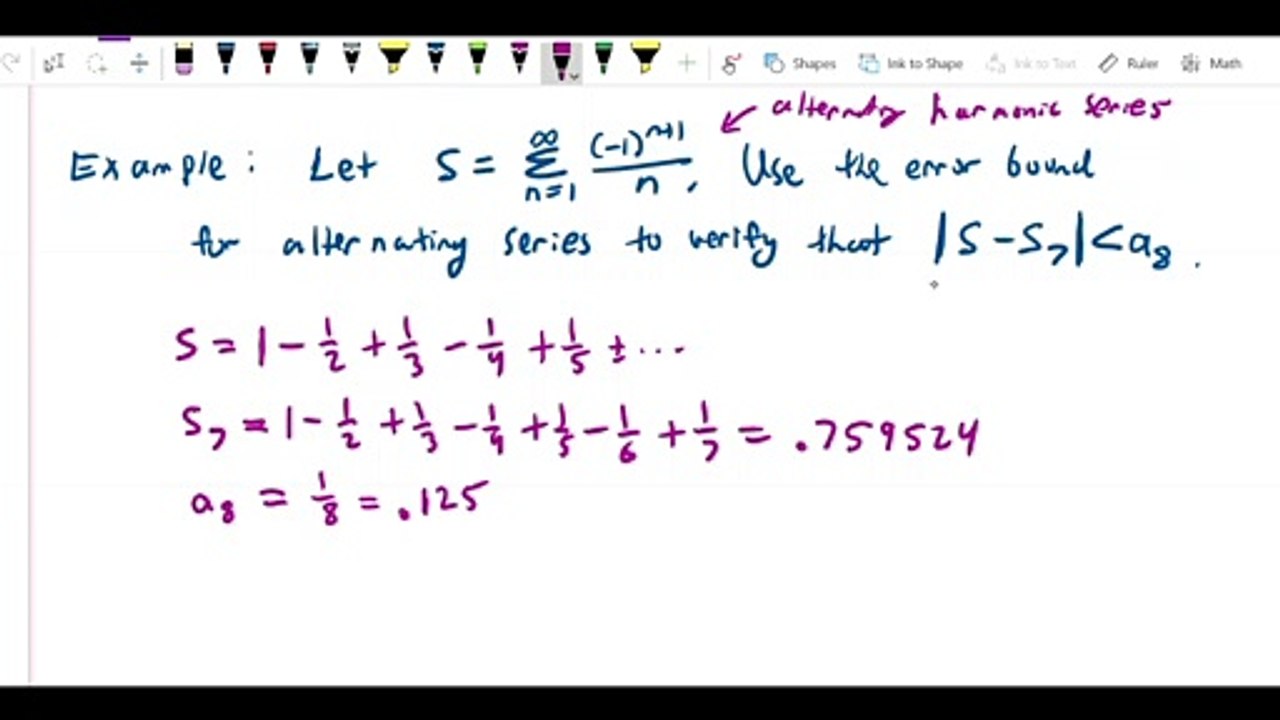 Shapes Ink to Shape Ink to Text Ruler Math
alternating harmonic series
Example: Let S = ∑_{n=1}^{∞} (-1)^{n+1}/n. Use the error bound
for alternating series to verify that |S - S₇| < a₈.
S = 1 - 1/2 + 1/3 - 1/4 + 1/5 ± ...
S₇ = 1 - 1/2 + 1/3 - 1/4 + 1/5 - 1/6 + 1/7 = .759524
a₈ = 1/8 = .125